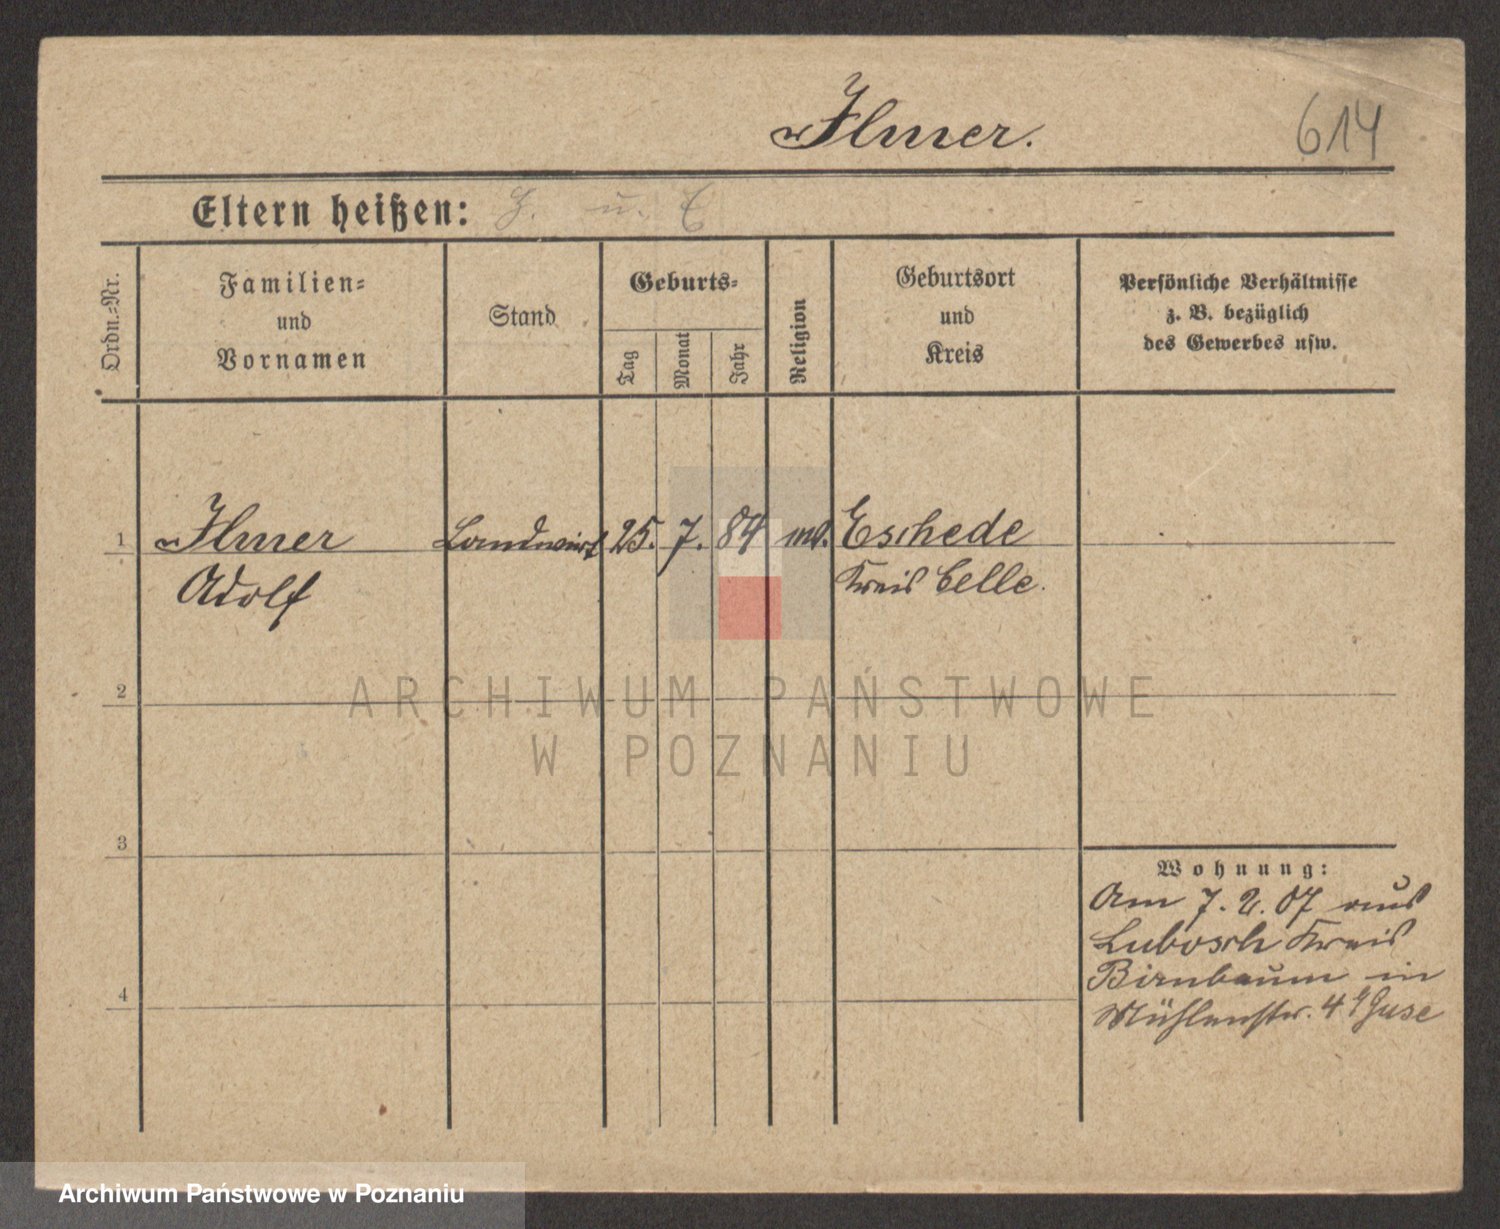 Ilmer.
614
Eltern heißen:
Ordn.-Nr.
Familien-
und
Vornamen
Stand
Geburts-
Tag
Monat
Jahr
Religion
Geburtsort
und
Kreis
Persönliche Verhältnisse
z. B. bezüglich
des Gewerbes usw.
1 Ilmer Landwirt 25. 7. 84 Eschede
Adolf Kreis Celle.
2
3
4
Wohnung:
Am 7. 2. 07 aus
Lubosch Kreis
Birnbaum in
Mühlenstr. 4 Guse
ARCHIWUM PAŃSTWOWE
W POZNANIU
Archiwum Państwowe w Poznaniu